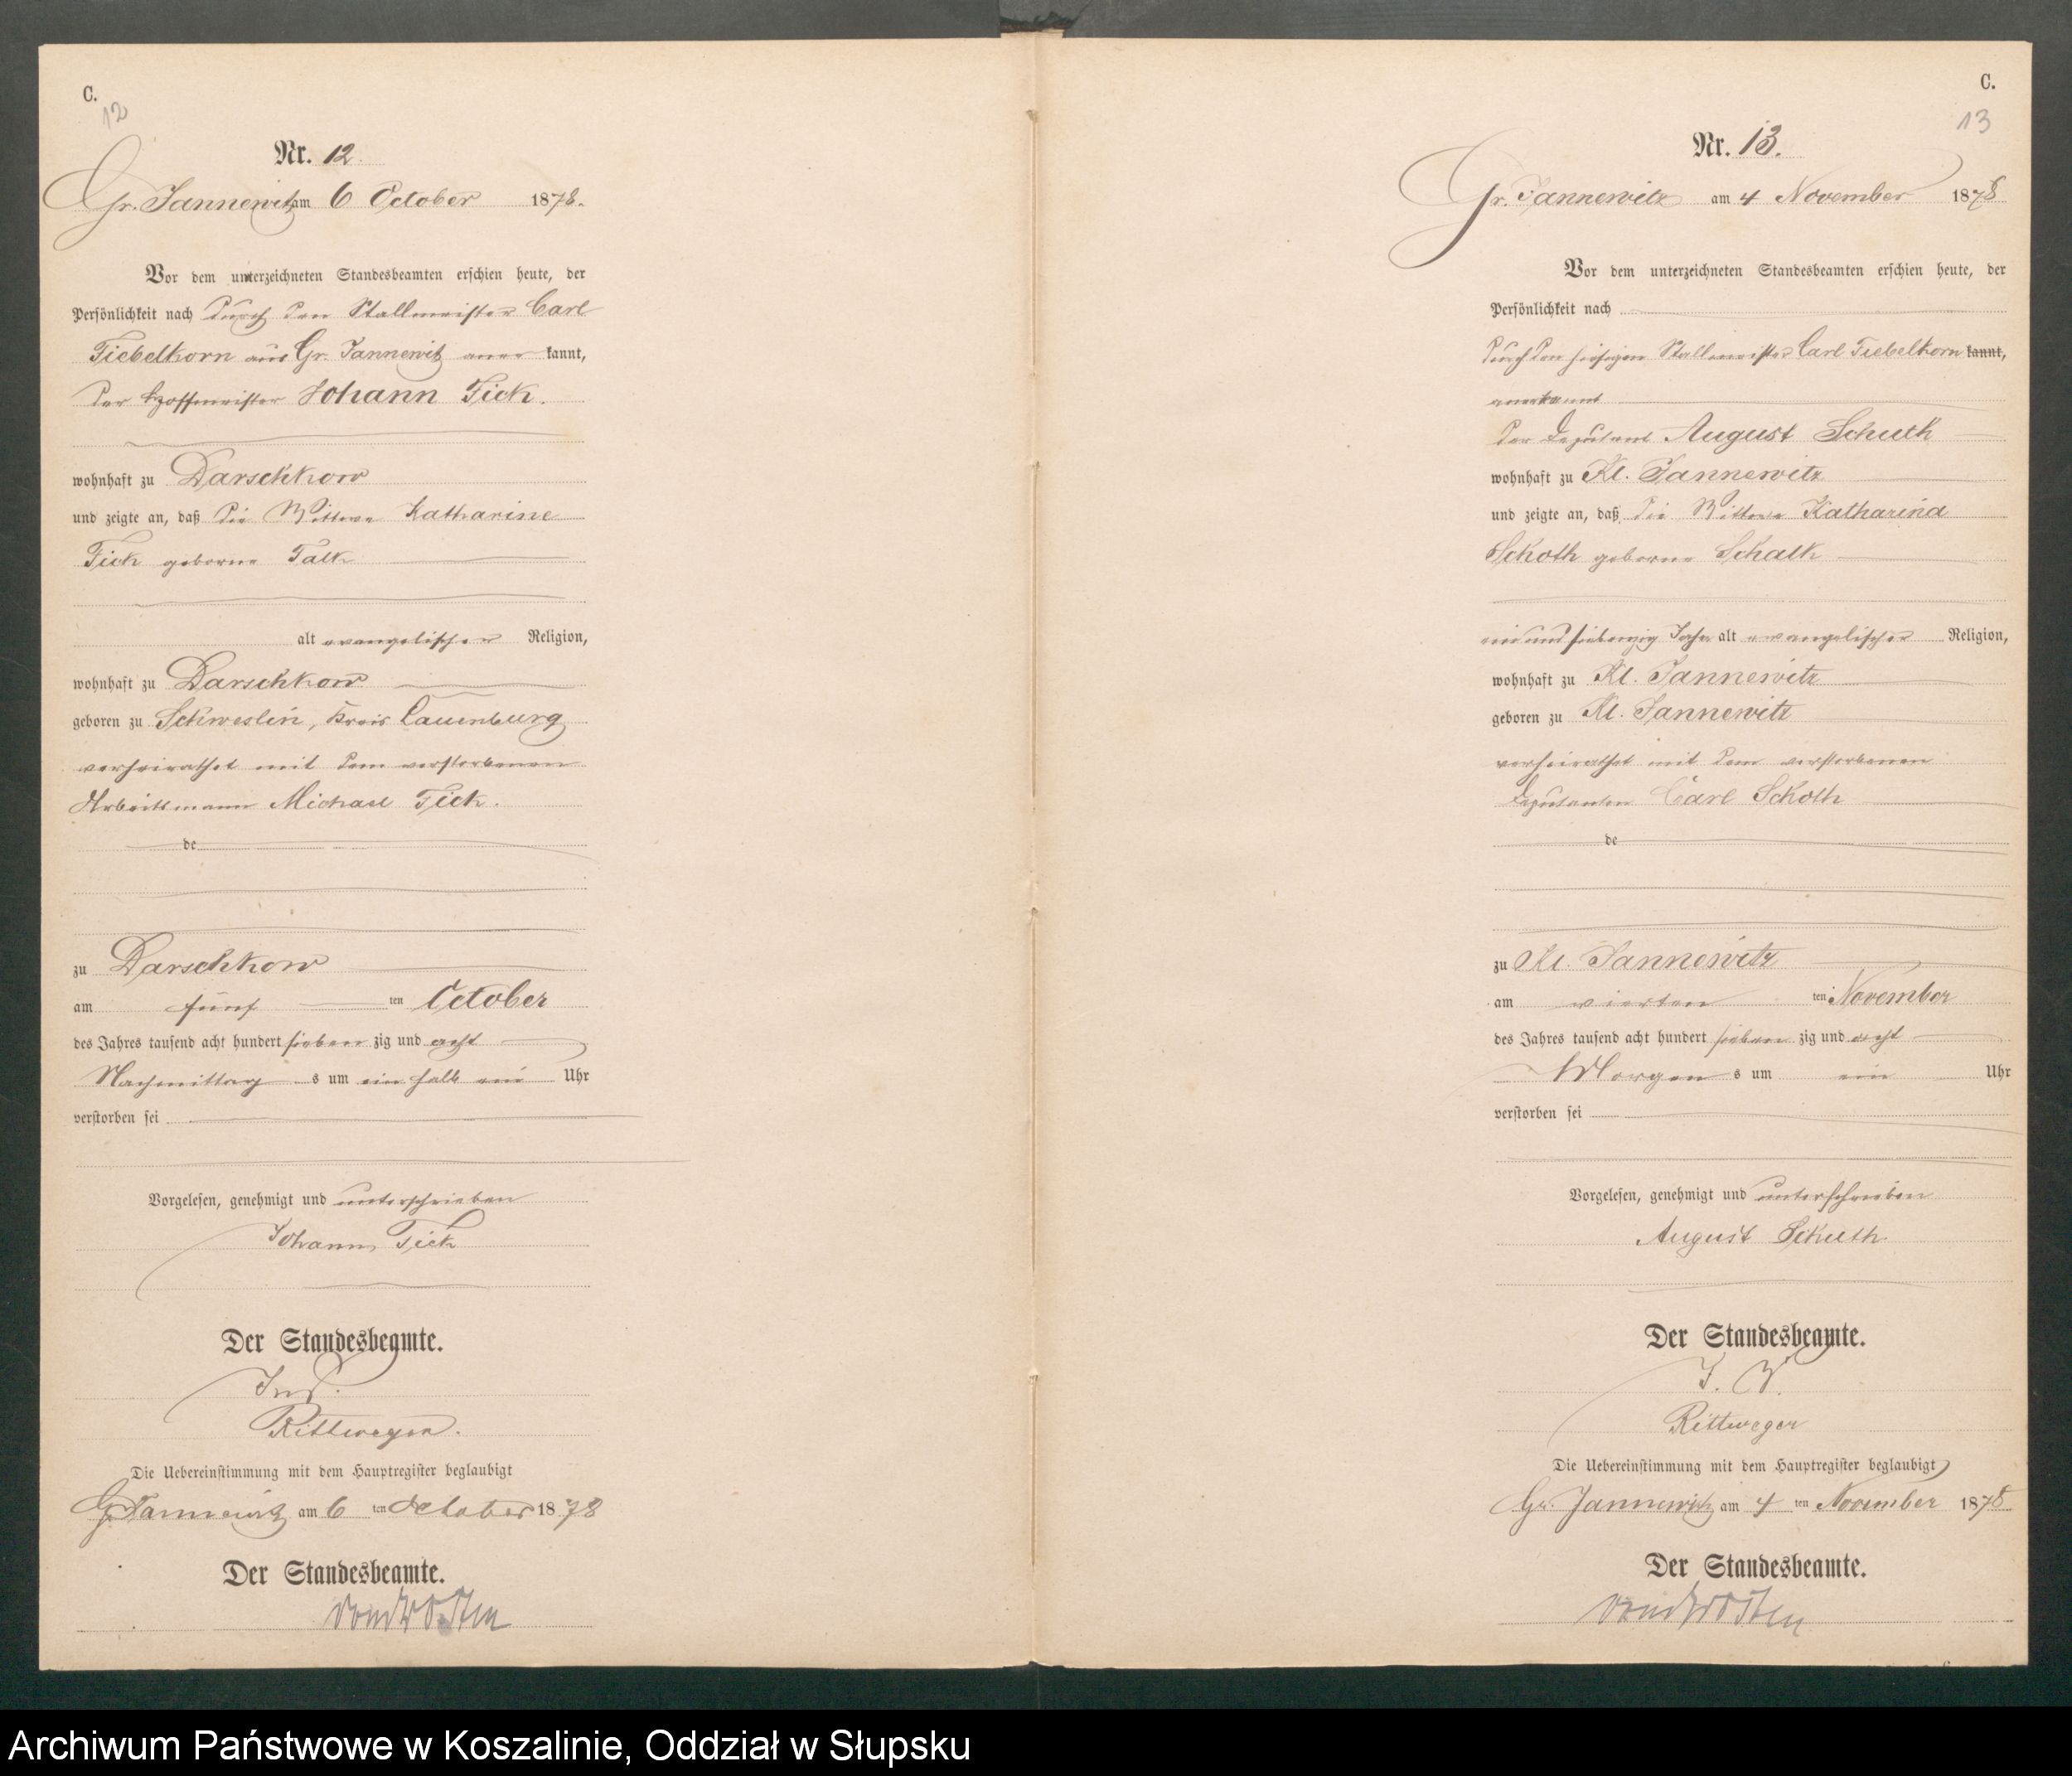 C.
12
Nr. 12.
Gr. Jannewitz am 6 October 1878.
Vor dem unterzeichneten Standesbeamten erschien heute, der
Persönlichkeit nach durch den Stallmeister Carl
Tiebelkorn aus Gr. Jannewitz aner kannt,
der Hoffmeister Johann Fick.
wohnhaft zu Darschkow
und zeigte an, daß die Wittwe Katharine
Fick geborne Talk
alt evangelischer Religion,
wohnhaft zu Darschkow
geboren zu Schweslin, Kreis Lauenburg
verheirathet mit dem verstorbenen
Arbeitsmann Michael Fick.
de
zu Darschkow
am fünf ten October
des Jahres tausend acht hundert sieben zig und acht
Nachmittag s um ein halb ein Uhr
verstorben sei
Vorgelesen, genehmigt und unterschrieben
Johann Fick
Der Standesbeamte.
In V.
Rittweger.
Die Uebereinstimmung mit dem Hauptregister beglaubigt
Gr Jannewitz am 6 ten October 1878
Der Standesbeamte.
C.
13
Nr. 13.
Gr. Jannewitz am 4 November 1878
Vor dem unterzeichneten Standesbeamten erschien heute, der
Persönlichkeit nach
durch den hiesigen Stallmeister Carl Tiebelkorn kannt,
anerkannt
der Deputant August Schuth
wohnhaft zu Kl. Jannewitz
und zeigte an, daß die Wittwe Katharina
Schoth geborne Schalk
ein und siebenzig Jahr alt evangelischer Religion,
wohnhaft zu Kl. Jannewitz
geboren zu Kl. Jannewitz
verheirathet mit dem verstorbenen
Deputanten Carl Schoth
de
zu Kl. Jannewitz
am vierten ten November
des Jahres tausend acht hundert sieben zig und acht
Morgen s um ein Uhr
verstorben sei
Vorgelesen, genehmigt und unterschrieben
August Schuth
Der Standesbeamte.
I. V.
Rittweger
Die Uebereinstimmung mit dem Hauptregister beglaubigt
Gr. Jannewitz am 4 ten November 1878
Der Standesbeamte.
Archiwum Państwowe w Koszalinie, Oddział w Słupsku